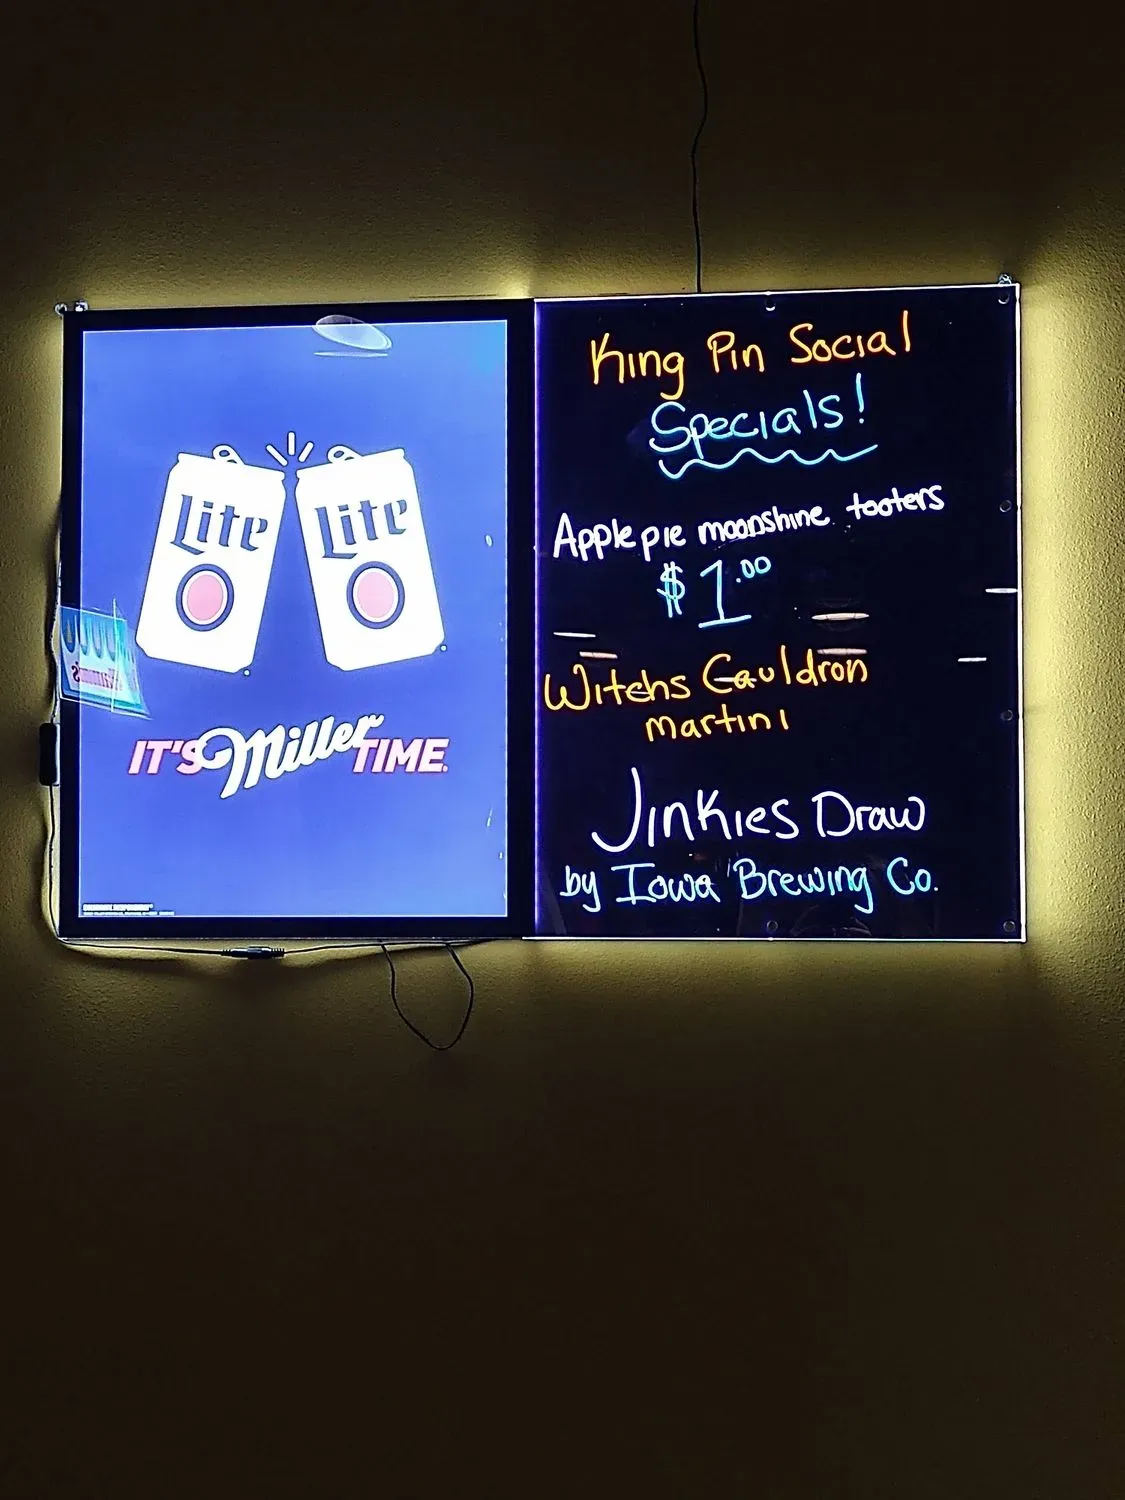 Lite Lite
IT'S Miller TIME.
King Pin Social
Specials!
Apple pie moonshine tooters
$1.00
Witchs Cauldron
martini
Jinkies Draw
by Iowa Brewing Co.